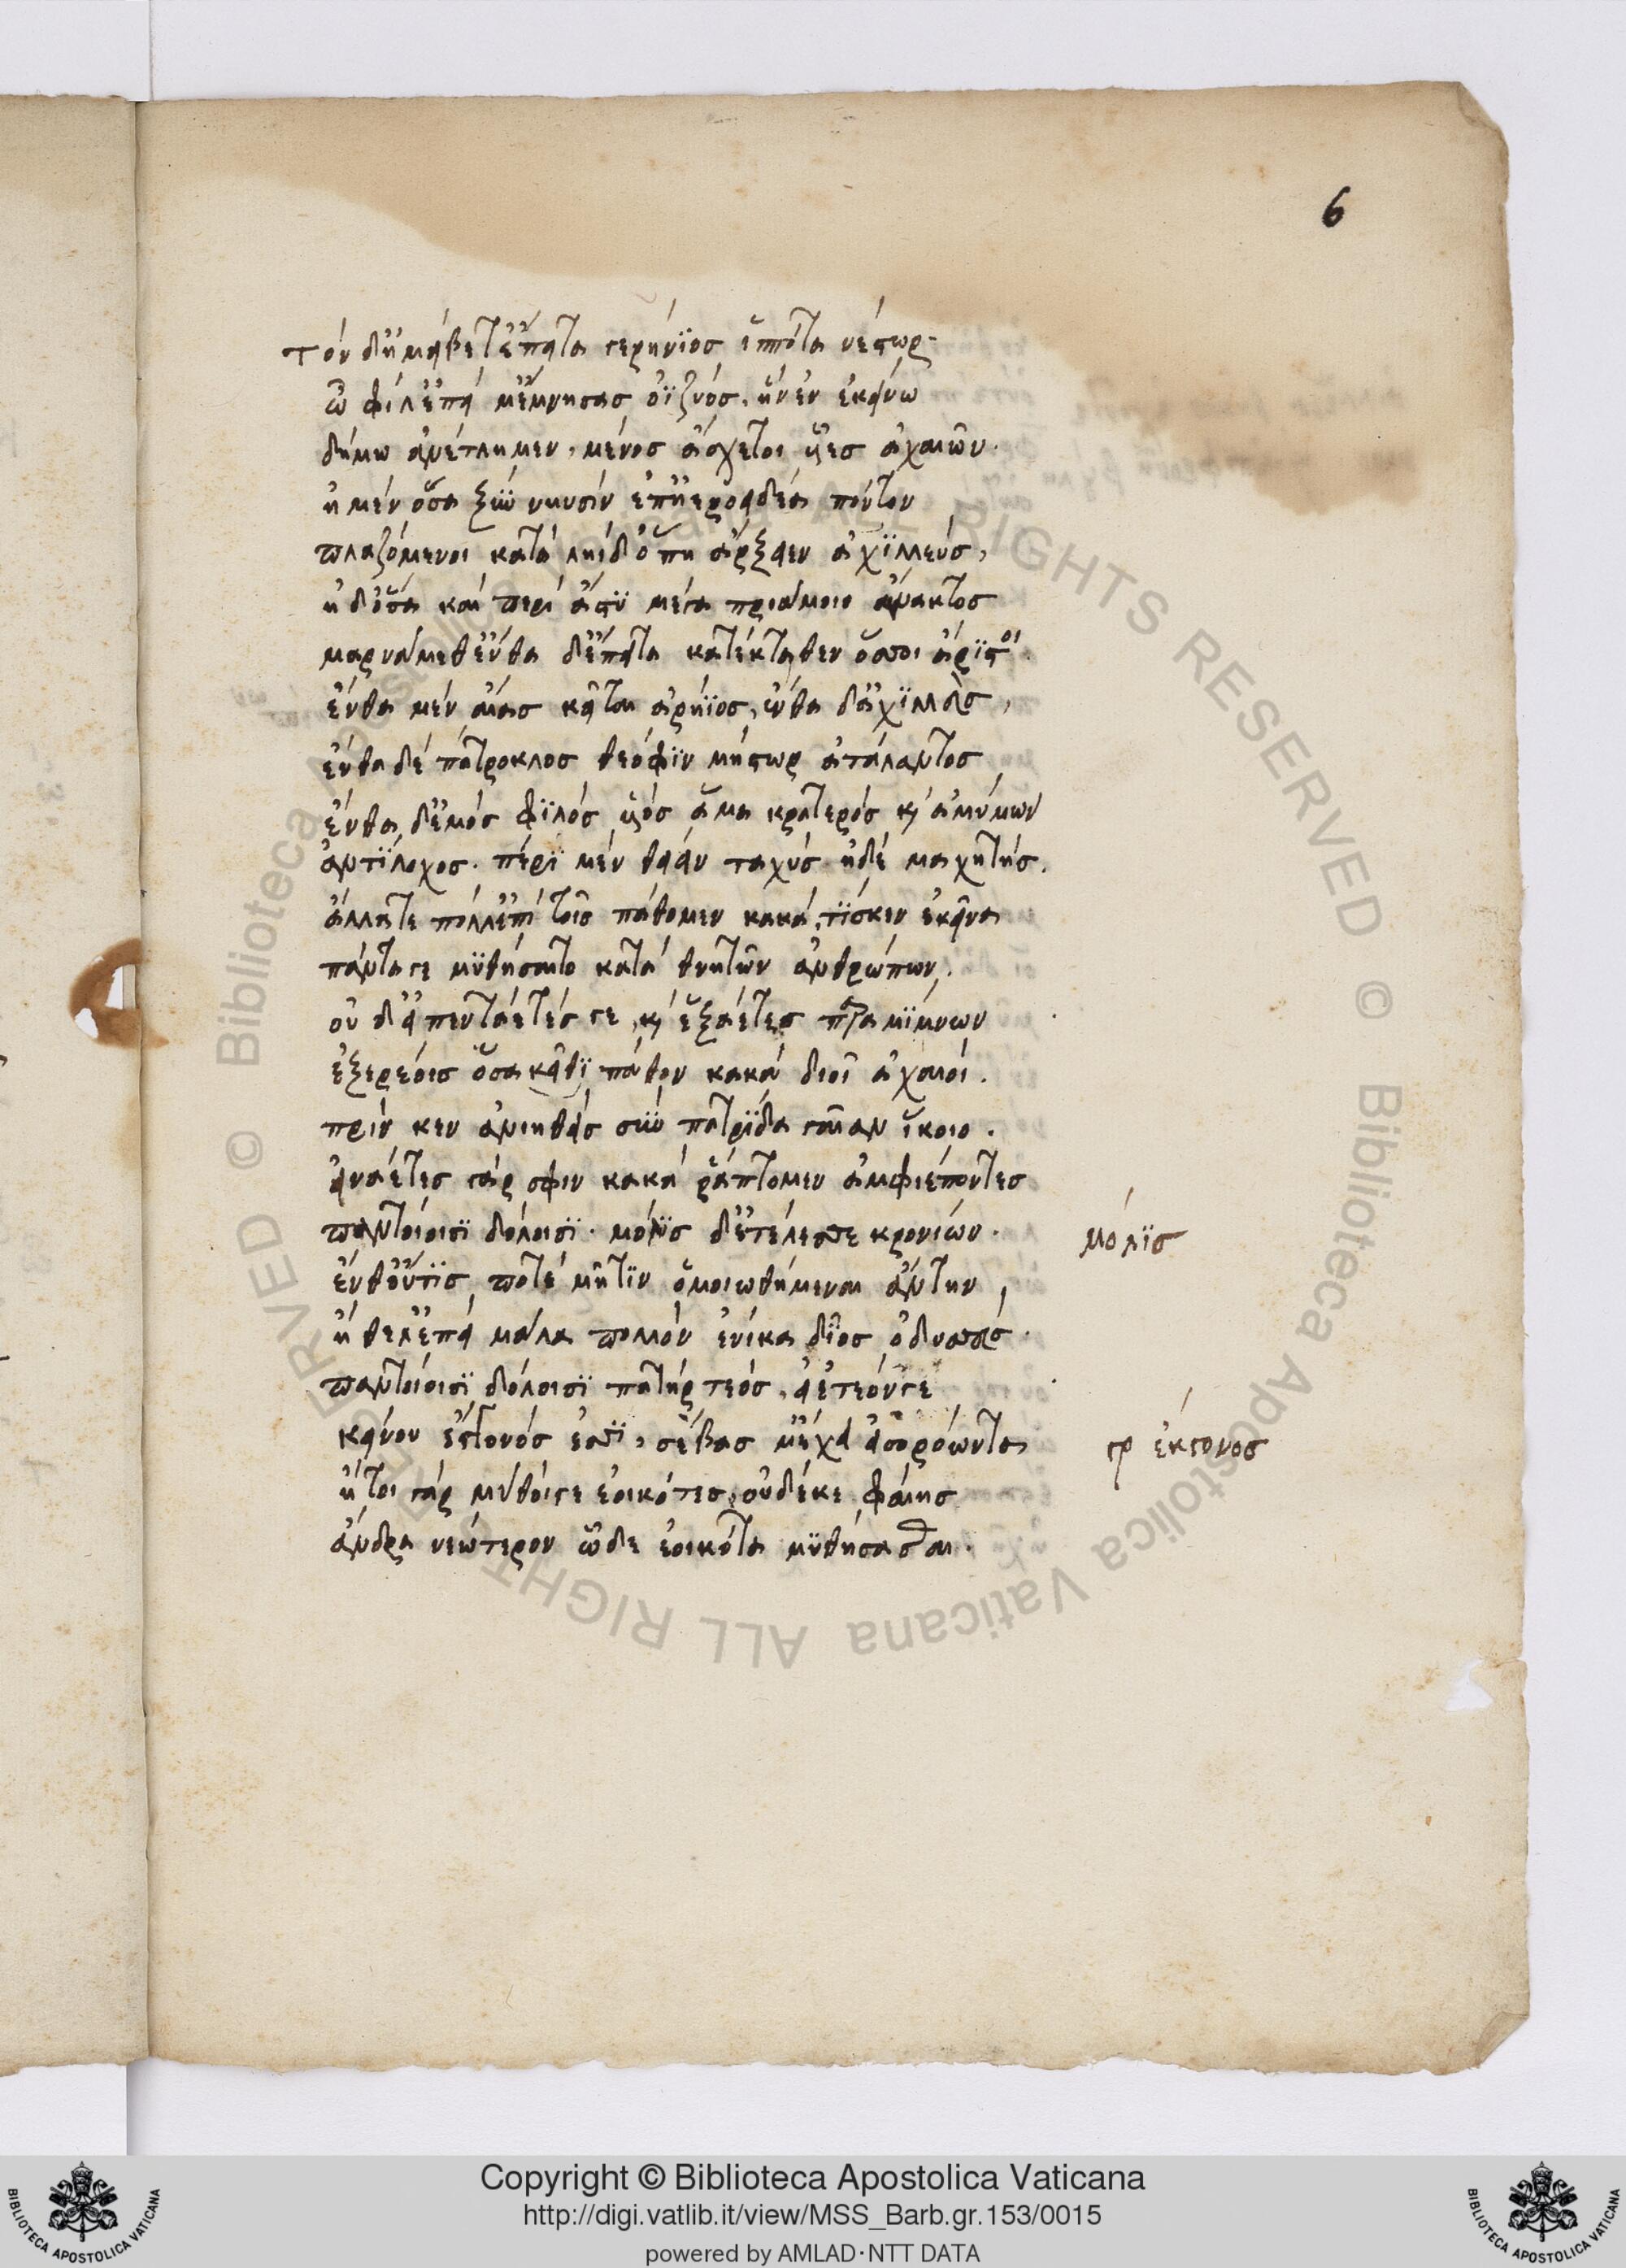 6
τὸν δ' ἠμείβετ' ἔπειτα γερήνϊος ἱππότα νέστωρ·
ὦ φίλ' ἐπεί μ' ἔμνησας ὀϊζύος, ἣν ἐν ἐκείνω
δήμω ἀνέτλημεν, μένος ἄσχετοι υἷες ἀχαιῶν·
ἠ μέν ὅσα ξὺν νηυσὶν ἐπ' ἠεροειδέα πόντον
πλαζόμενοι κατὰ ληίδ' ὅπη ἄρξειεν ἀχϊλλεύς,
ἠ δ' ὅσα καὶ περὶ ἄστϋ μέγα πριάμοιο ἄνακτος
μαρνάμεθ' ἔνθα δ' ἔπειτα κατέκταθεν ὅσσοι ἄρϊστοι.
ἔνθα μὲν αἴας κεῖται ἀρήϊος, ἔνθα δ' ἀχϊλλεὺς,
ἔνθα δὲ πάτροκλος θεόφϊν μήστωρ ἀτάλαντος,
ἔνθα δ' ἐμὸς φϊλὸς υἱὸς ἅμα κρατερὸς κὶ ἀμύμων
ἀντϊλοχος. πέρϊ μὲν θείειν ταχὺς ἠδὲ μαχητής.
ἄλλά τε πόλλ' ἐπὶ τοῖς πάθομεν κακά, τϊς κεν ἐκεῖνα
πάντα γε μϋθήσαιτο κατὰ θνητῶν ἀνθρώπων.
οὐ δ' εἰ πενταετές γε, κὶ ἑξαέτες παραμϊμνων
ἐξερέοις ὅσα κεῖθϊ πάθον κακὰ διοῖ ἀχαιοί.
πρίν κεν ἀνιηθεὶς σὴν πατρϊδα γαῖαν ἵκοιο.
εἰναέτες γάρ σφιν κακὰ ῥάπτομεν ἀμφιέποντες
παντοίοισϊ δόλοισϊ· μόλϊς δ' ἐτέλεσσε κρονίων.
μόλϊς
ἔνθ' οὔτϊς ποτὲ μῆτϊν ὁμοιωθήμεναι ἄντην,
ἤθελ' ἐπεὶ μάλα πολλὸν ἐνίκα δῖος ὀδυσσεύς.
παντοίοισϊ δόλοισϊ πατὴρ τεός, εἰ ἐτεόν γε
κείνου ἔγγονός ἐσσϊ, σέβας μ' ἔχει εἰσορόωντα
γρ ἔκγονος
ἤτοι γὰρ μῦθοί γε ἐοικότες, οὐδέ κε φαίης
ἄνδρα νεώτερον ὧδε ἐοικότα μϋθήσασθαι.
© Biblioteca Apostolica Vaticana ALL RIGHTS RESERVED © Biblioteca Apostolica Vaticana ALL RIGHTS RESERVED
Copyright © Biblioteca Apostolica Vaticana
http://digi.vatlib.it/view/MSS_Barb.gr.153/0015
powered by AMLAD·NTT DATA
BIBLIOTECA APOSTOLICA VATICANA
BIBLIOTECA APOSTOLICA VATICANA